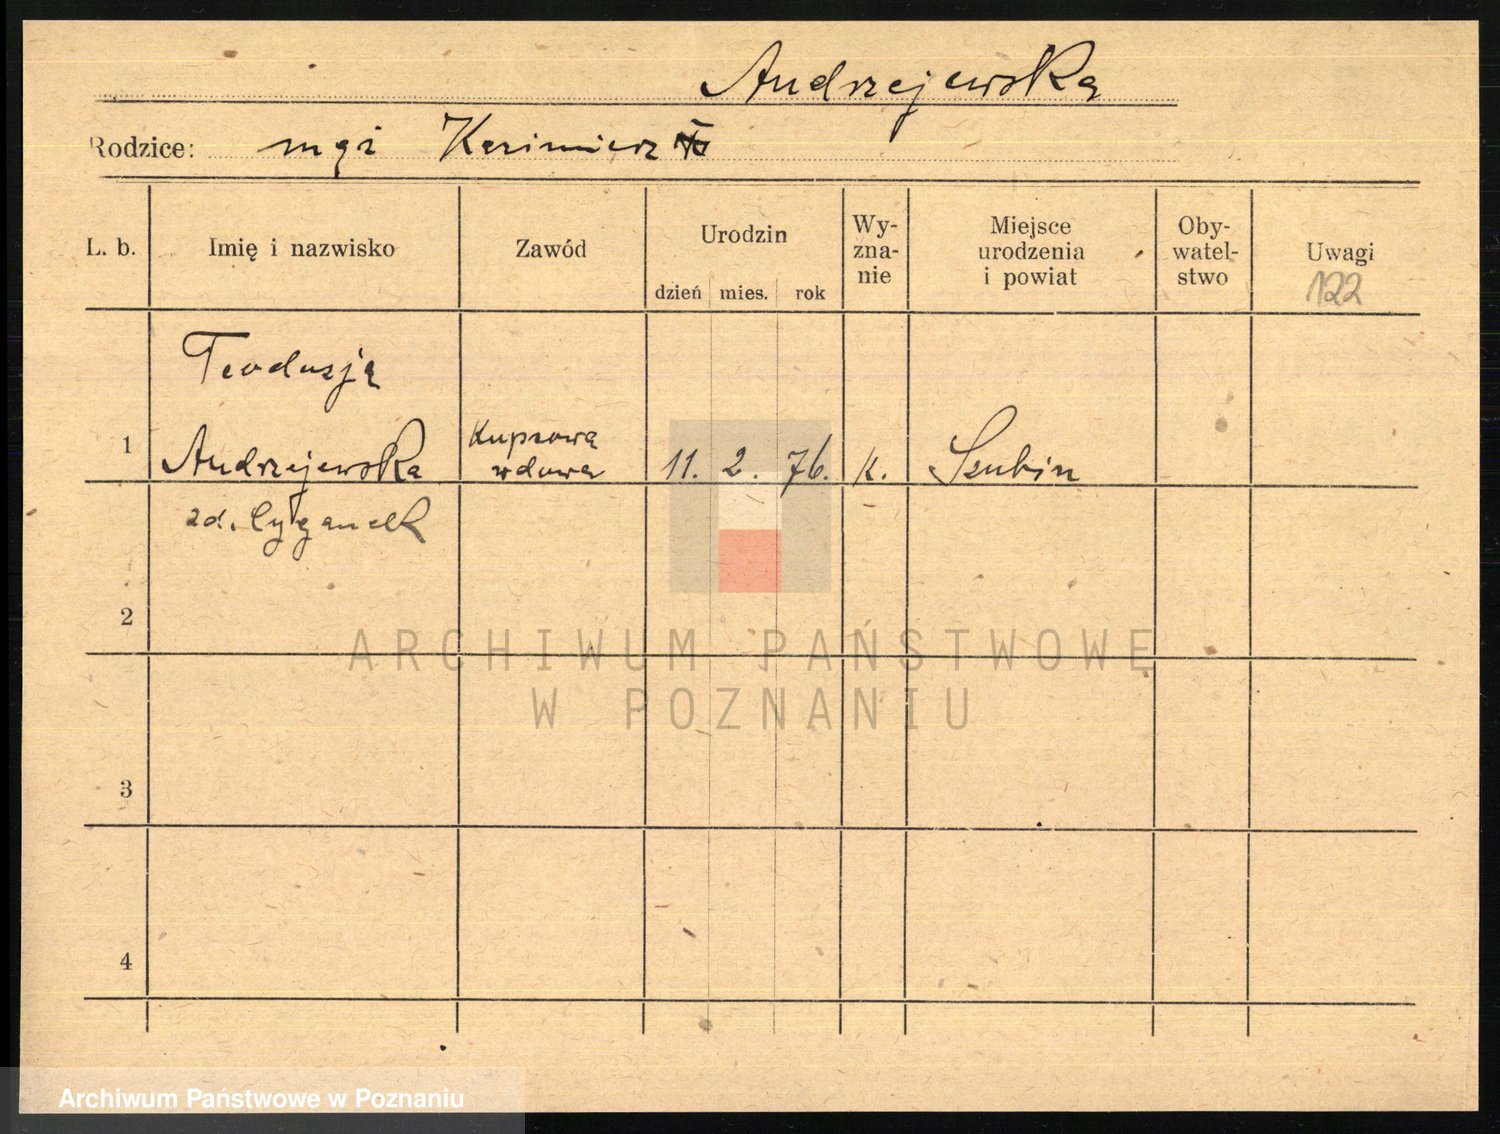 Andrzejewska
Rodzice: mąż Kazimierz
L. b. Imię i nazwisko Zawód Urodzin Wy-zna-nie Miejsce urodzenia i powiat Oby-watel-stwo Uwagi
dzień mies. rok
122
Teodozja
1 Andrzejewska Kupcowa wdowa 11. 2. 76. K. Szubin
zd. Cyganek
2
3
4
ARCHIWUM PAŃSTWOWE
W POZNANIU
Archiwum Państwowe w Poznaniu